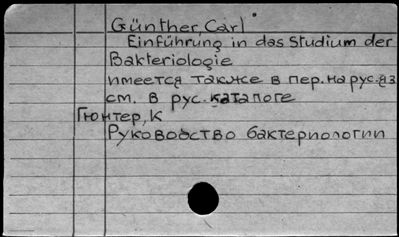 Günther, Carl
Einführung in das Studium der
Bakteriologie
имеется также в пер. на рус. яз
см. в рус. каталоге
Гюнтер, К
Руководство бактериологии